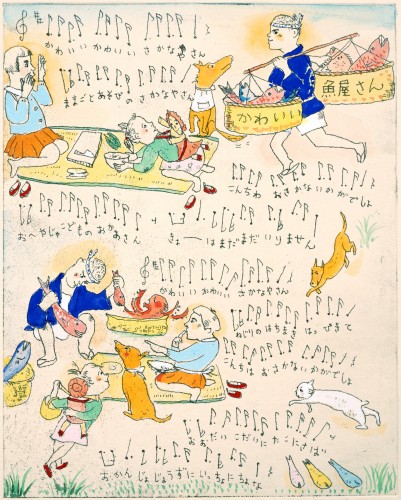 かわいい かわいい さかなやさん
ままごとあそびの さかなやさん
魚屋さん
かわいい
こんちわ おさかないかがでしょ
おへやじゃこどものおかあさん
きょーはまだまだいりません
かわいい かわいい さかなやさん
ねじりのはちまき はっぴきて
こんちは おさかないかがでしょ
おおだいこだいにたこにさば
おかんじょじょうずに いっちにちょな